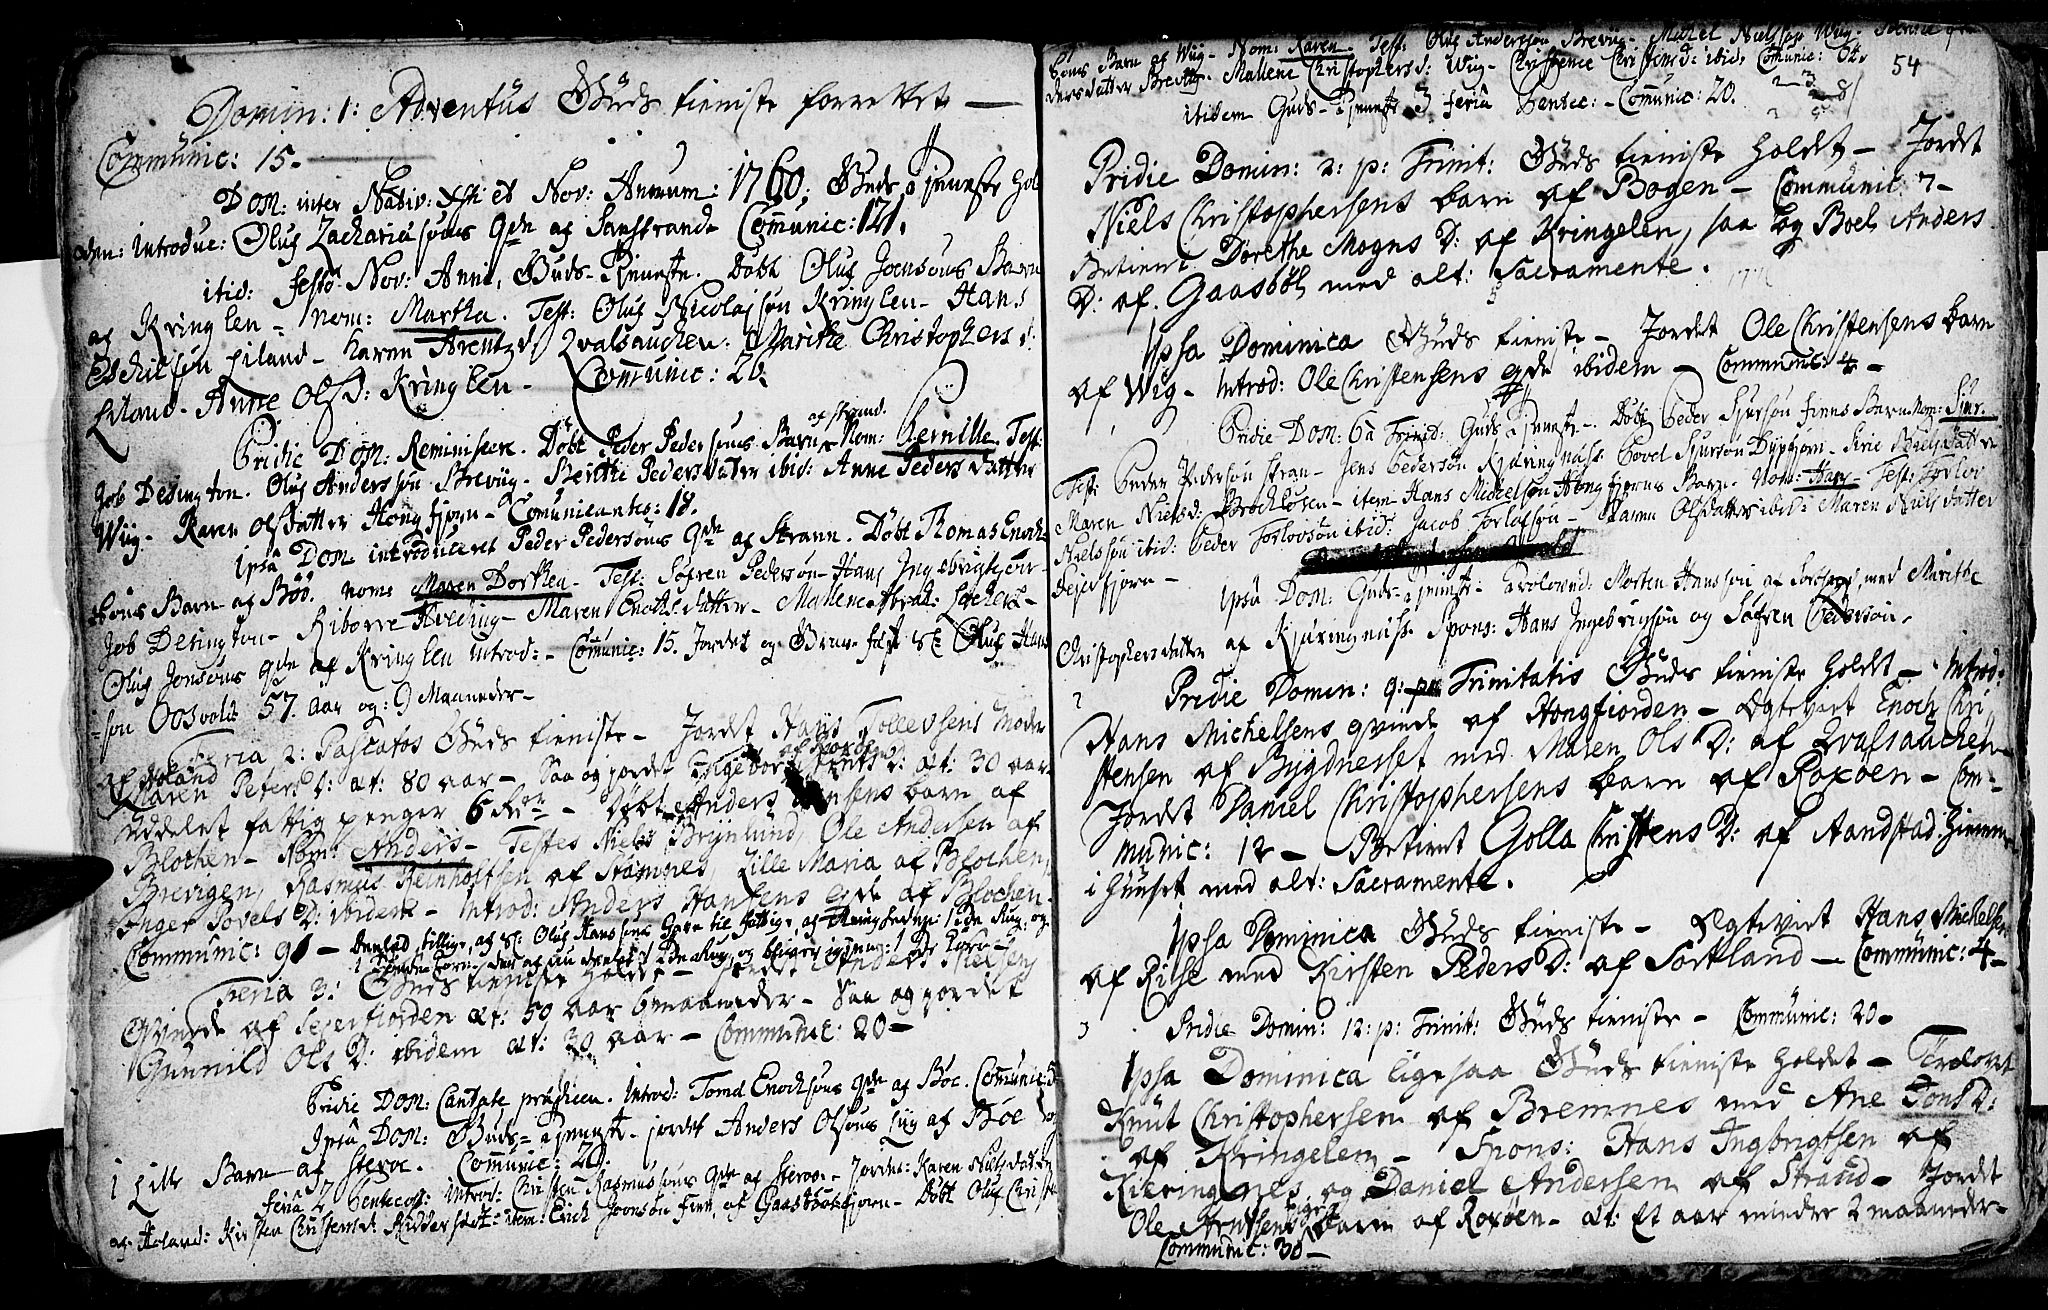 Domin: 1: Adventus Guds tieniste forrettet —
Communic: 15.
DOM: inter Nativ: Xsti et Nov: Annum: 1760. Guds tjeneste hol
den: Introduc: Oluf Zachariasøns qde af Sanstrand. Comunic: 121.
itid: festo Nov: Anni, Guds-tieneste. Døbt Oluf Joensøns Barn
af Kringlen - nom: Martha. Test: Oluf Nicolajsøn Kringlen - Hans
Eschilsøn Eiland - Karen Arentzd: Qvalsauchen: Marithe Christophers d:
Eiland. Anne Olsd: Kringlen. Comunic: 20.
Pridie DOM: Reminiscere. Døbt Peder Pedersøns Barn af Strand. Nom: Pernille. Test:
Job Desington. Oluf Anderssøn Brevig. Berithe Pedersdatter ibid: Anne Peders datter
Wiig. Karen Olsdatter Hongfjorn - Comunicantes: 18.
Ipsa DOM: introduceret Peder Pedersøns qde af Strann. Døbt Thomas Enoch
søns Barn af Böö. Nom: Maren Dorthea. Test: Søfren Pedersøn - Hans Ingebrigtsøn
Job Desington - Maren Enochsdatter -
Oluf Jonsøns qde af Kringlen introd: - Comunic: 15. Jordet og Graven fæst Sl: Oluf Hans
søn Oosvold 57. aar og: 9 Maaneder -
Feria 2: Pascatos Guds tieniste - Jordet Hans Tollevsens Moder
Maren Peters D: æt: 80 aar - Saa og jordet Ingebor D: æt: 30 aar
uddelet fattig penger 6 Rdr - Døbt Anders Hansens barn af
Blochen - Nom: Anders - Testes Niels Brynlund, Ole Andersen af
Brevigen, Rasmus Reinholtsen af Stamnes, Lille Maria af Blochen,
Inger Povels D: ibidem - Introd: Anders Hansens qde af Blochen -
Communic: 91 - tillige af Sl: Oluf Hanssøns Gave til fattige
Feria 3: Guds tieniste holdt - Jordet Anders Nielsens
Qvinde af Sejerfiorden æt: 50 aar 6 maaneder - Saa og jordet
Gunnild Ols D: ibidem æt: 30 aar - Communic: 20 -
Pridie DOM: Cantate prædiken. Introd: Tomas Enochsøns qde af Böe. Comunic:
Ipsa DOM: Guds-tjeneste - jordet Anders Olsøns Liig af Böe og
1 Lille Barn af Steroe. Comunic: 20.
Feria 2 Pentecost: introd: Christen Rasmussøns qde af Steroe - Jordet: Karen Nielsdatter
af Holand: Kirsten Christensd: item: Erich Joensøn Finn, af Gaasbølsfjorn - Døbt Oluf Christen
54
søns Barn af Wig - Nom: Karen. Test: Oluf Andersøn Brevig - Michel Nielsøn Wig -
dersdatter Brevig. Mallene Christophersd: Wig - Christence Christensd: ibid: Comunic:
itidem Guds-tjeneste 3 feria Pentec: - Comunic: 20.
Pridie Domin: 2: p: Trinit: Guds tieniste holdet - Jordet
Niels Christophersens barn af Bogen - Communic: 7 -
Betient Dorethe Mogns D: af Kringelen, saa og Boel Anders
D: af Gaasbøl med alt: Sacramente.
Ipsa Dominica Guds tieniste - Jordet Ole Christensens barn
af Wig - Introd: Ole Christensens qde ibidem - Communic: 4 -
Pridie DOM: 6ta Trinid: Guds tjeneste - Døbt Peder Sjursøn Finns Barn. Nom: Sjur.
Test: Peder Pedersøn Stran - Jens Pedersøn Kjæringnæss. Povel Sjursøn Dypfjorn -
Maren Nielsd: Brochløsen - item Hans Michelsøn Hongfjorns Barn. Nom: Hans - Test: Torlov
Nielssøn ibid: Peder Torlovsøn ibid: Jacob Torlofsøn - Karen Olsdatter ibid: Maren Niels datter
Sejerfjorn -
Ipsa DOM: Guds-tjeneste - Troloved: Morten Hanssøn af med Marithe
Christophersdatter af Kjæringnæss. Spons: Hans Ingebrigtsøn og Søfren Pedersøn.
Pridie Domin: 9: Trinitatis Guds tieniste holdt - Introd:
Hans Michelsens qvinde af Hongfiorden - Ægteviet Enoch Chri
stensen af Bygdnesset med Maren Ols D: af Qvalsauchen -
Jordet Daniel Christophersens barn af Roxøen - Com-
munic: 12 - Betient Golla Christens D: af Aandstad: Hiemme
i Huuset med alt: Sacramente.
Ipsa Dominica Guds tieniste - Ægteviet Hans Michelsen
af Rise med Kirsten Peders D: af Sortland - Communic: 4 -
3 Pridie Domin: 12: p: Trinit: Guds tieniste - Communic: 20 -
Ipsa Dominica ligesaa Guds tieniste holdet - Trolovet
Knut Christophersen af Bremnes med Ane Tons D:
af Kringelen - Spons: Hans Ingbrigtsen af
Kieringnes og Daniel Andersen af Strand - Jordet
Ole Arntsens barn af Roxøen - æt: Et aar mindre 2 maaneder -
Communic: 30 -